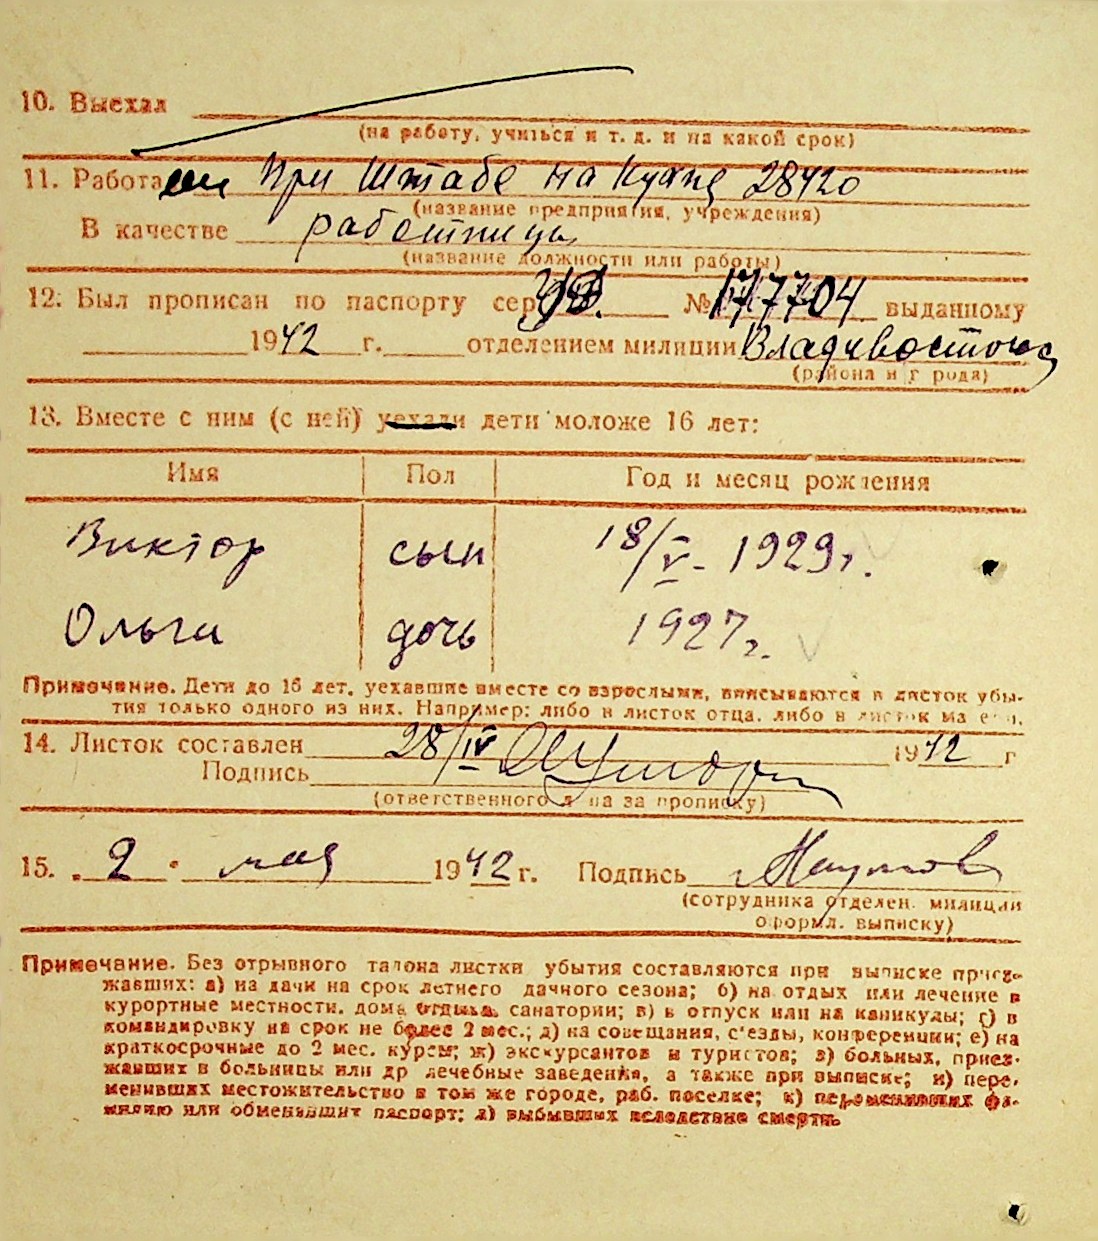 10. Выехал
(на работу, учиться и т. д. и на какой срок)
11. Работа при Штабе на кухне 28420
(название предприятия, учреждения)
В качестве работницы
(название должности или работы)
12. Был прописан по паспорту сер. № 177704 выданному
1942 г. отделением милиции Владивостока
(района и города)
13. Вместе с ним (с ней) уехали дети моложе 16 лет:
Имя Пол Год и месяц рождения
Виктор сын 18/V - 1929 г.
Ольга дочь 1927 г.
Примечание. Дети до 16 лет, уехавшие вместе со взрослыми, вписываются в листок убы-
тия только одного из них. Например: либо в листок отца, либо в листок матери.
14. Листок составлен 28/IV 1942 г
Подпись
(ответственного лица за прописку)
15. „2" мая 1942 г. Подпись Наумов
(сотрудника отделен. милиции
оформл. выписку)
Примечание. Без отрывного талона листки убытия составляются при выписке приез-
жавших: а) на дачи на срок летнего дачного сезона; б) на отдых или лечение в
курортные местности, дома отдыха, санатории; в) в отпуск или на каникулы; г) в
командировку на срок не более 2 мес.; д) на совещания, с'езды, конференции; е) на
краткосрочные до 2 мес. курсы; ж) экскурсантов и туристов; з) больных, приез-
жавших в больницы или др лечебные заведения, а также при выписке; и) пере-
менивших местожительство в том же городе, раб. поселке; к) переменивших фа-
милию или обменявших паспорт; л) выбывших вследствие смерти.